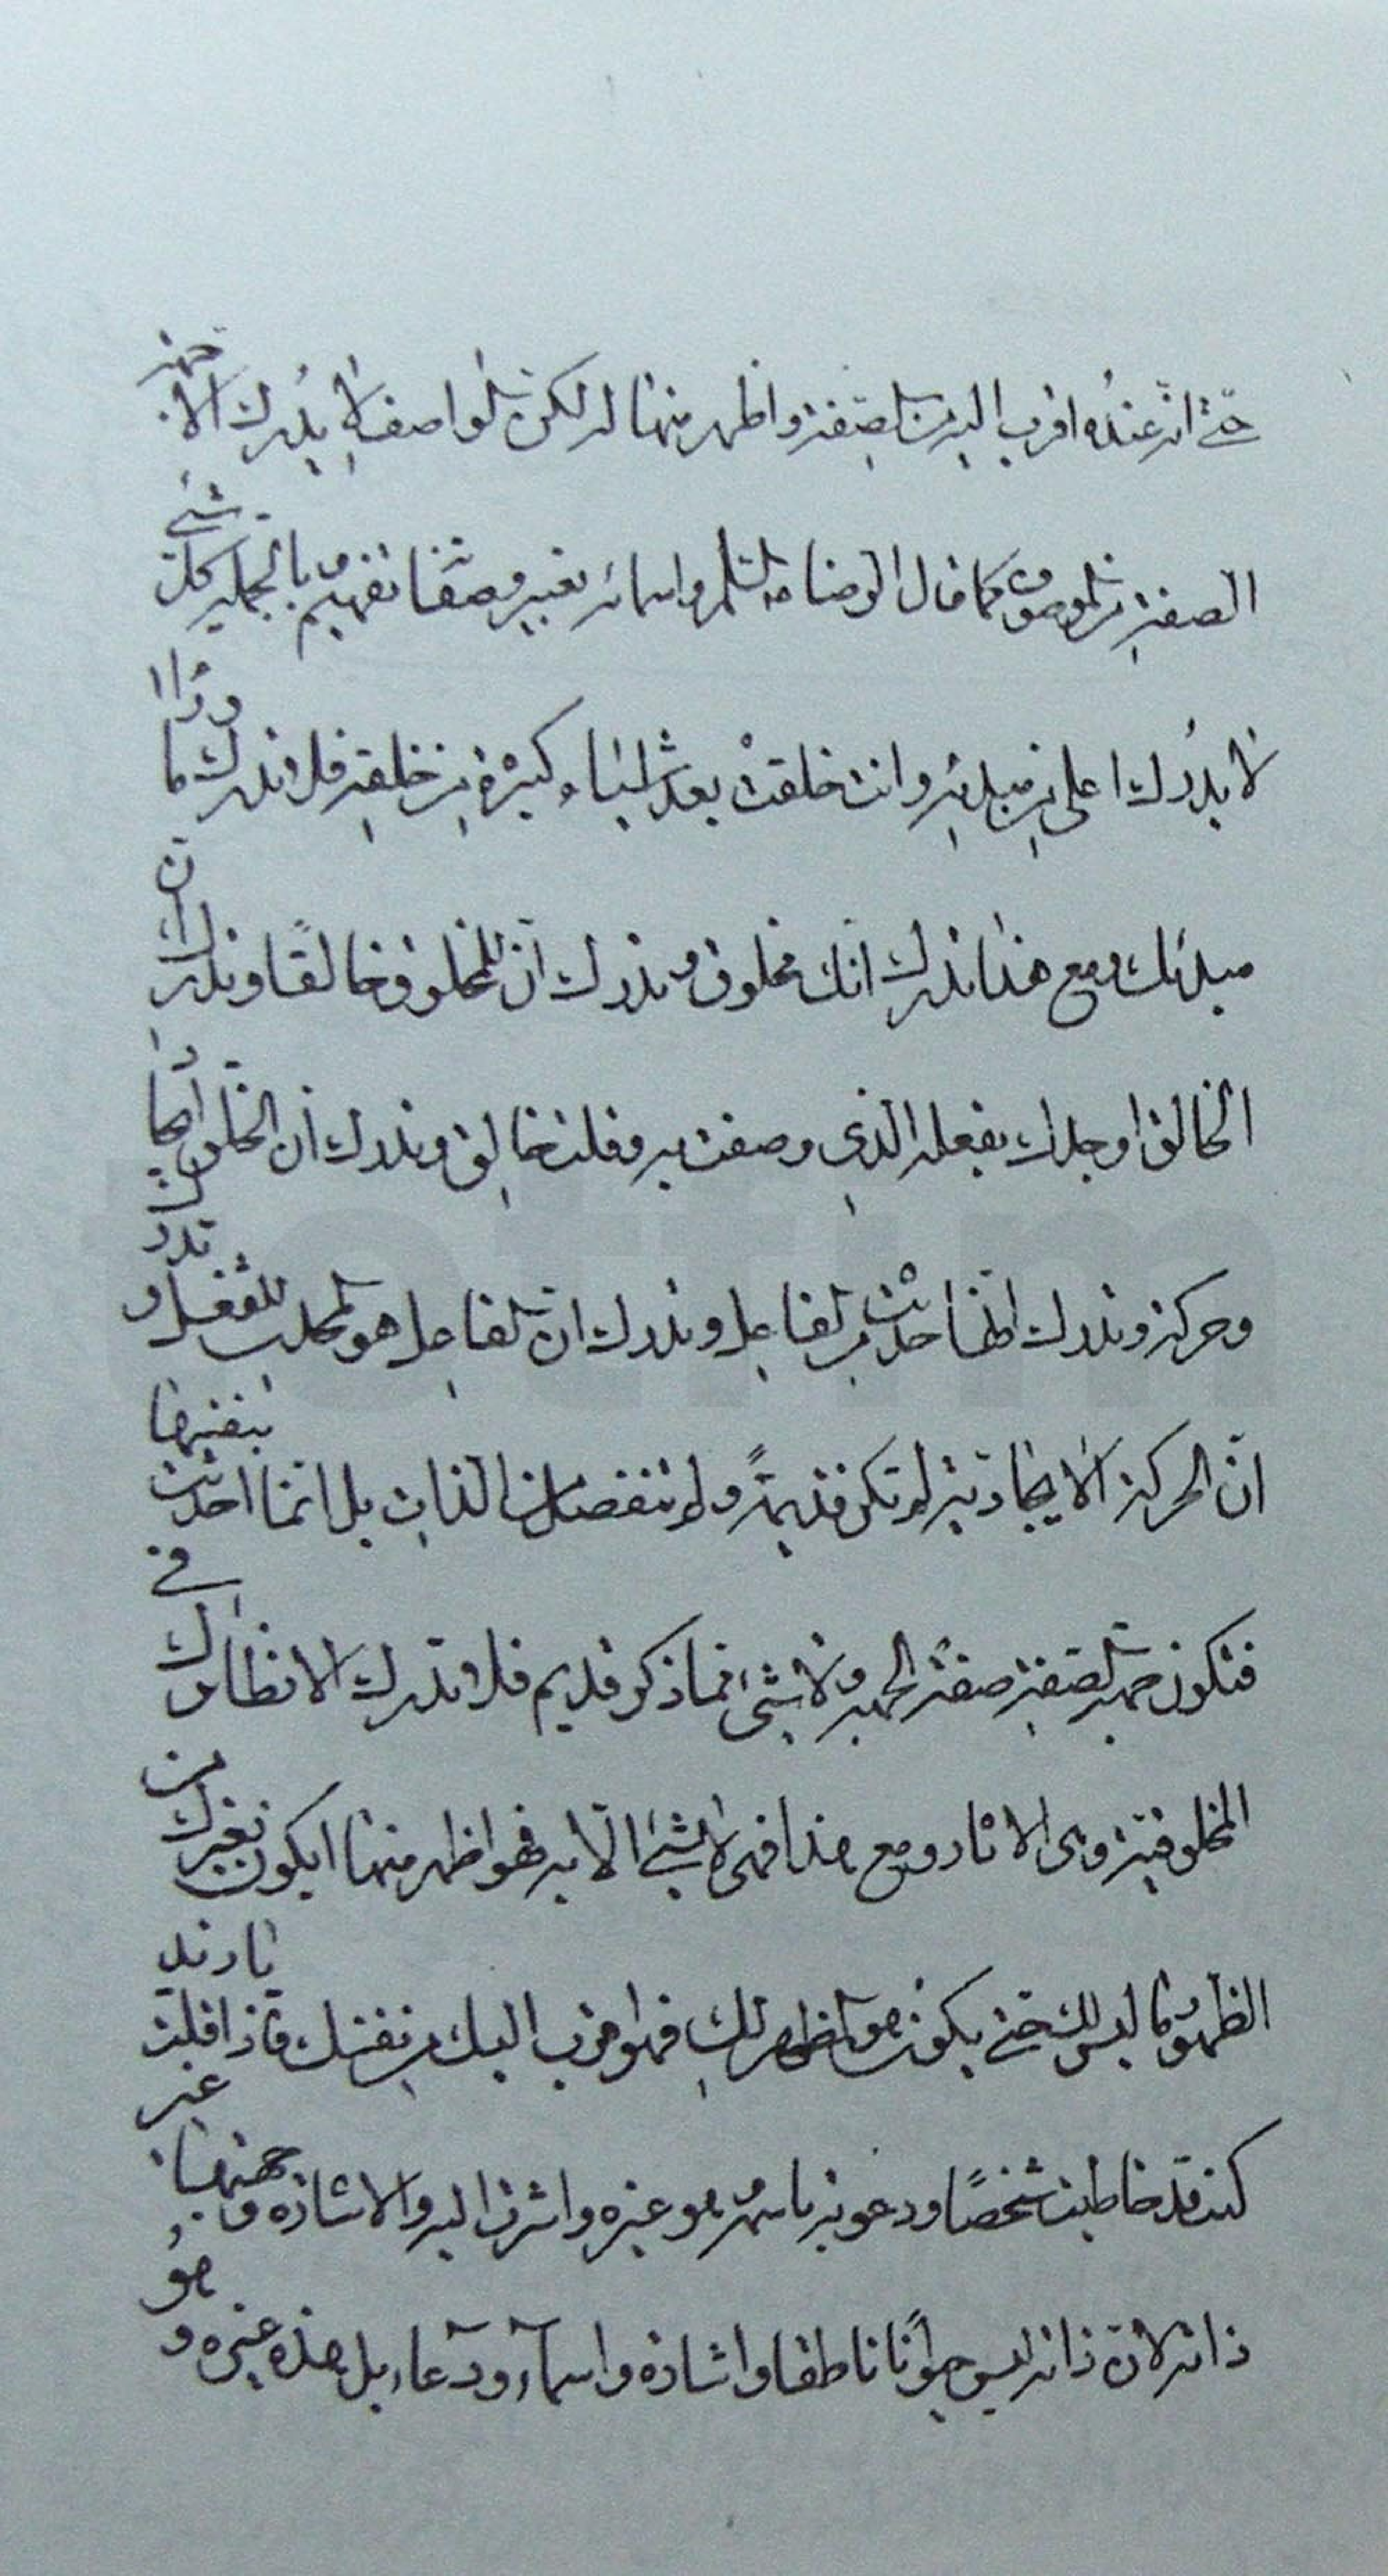 حتى انه عنده اقرب اليه من الصفة واظهر منها له لكن الواصف لا يدرك الا جهة
الصفة من الموصوف كما قال الرضا عليه السلام واسمائه تعبير وصفاته تفهيم وبالجملة كل شئ
لا يدرك اعلى من مبدئه وانت خلقت بعد اشياء كثيرة من خلقه فلا تدرك ما وراء
مبدئك ومع هذا تدرك انك مخلوق وتدرك ان للمخلوق خالقا وتدرك ان
الخالق اوجدك بفعله الذي وصفت به فقلت خالق وتدرك ان الخلق ايجادا
وحركة وتدرك انها حدثت من الفاعل وتدرك ان الفاعل هو المحدث للفعل وتدرك
ان الحركة الايجادية لم تكن قديمة ولم تنفصل من الذات بل انما احدثت بنفسها
فتكون جهة الصفة صفة الجهة ولا شئ مما ذكر قديم فلا تدرك الا نظائرك في
المخلوقية وهي الاثار ومع هذا فهي لا شئ الا به فهو اظهر منها ايكون لغيرك من
الظهور ما ليس لك حتى يكون هو المظهر لك فهو اقرب اليك من نفسك فاذا قلت يا زيد
كنت قد خاطبت شخصا ودعوته باسمه وهو غيره واشرت اليه والاشارة وجهتها غير
ذاته لان ذاته ليس حيوانا ناطقا واشارة واسماء ودعاء بل هذه غيره وهو